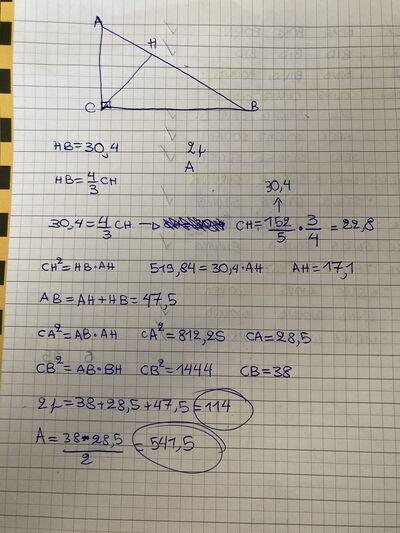 A
H
C
B
HB=30,4
2p
HB=4/3 CH
A
30,4
↑
30,4=4/3 CH → CH=152/5 · 3/4 = 22,8
CH²=HB·AH 519,84=30,4·AH AH=17,1
AB=AH+HB=47,5
CA²=AB·AH CA²=812,25 CA=28,5
CB²=AB·BH CB²=1444 CB=38
2p=38+28,5+47,5=114
A=38·28,5/2=541,5